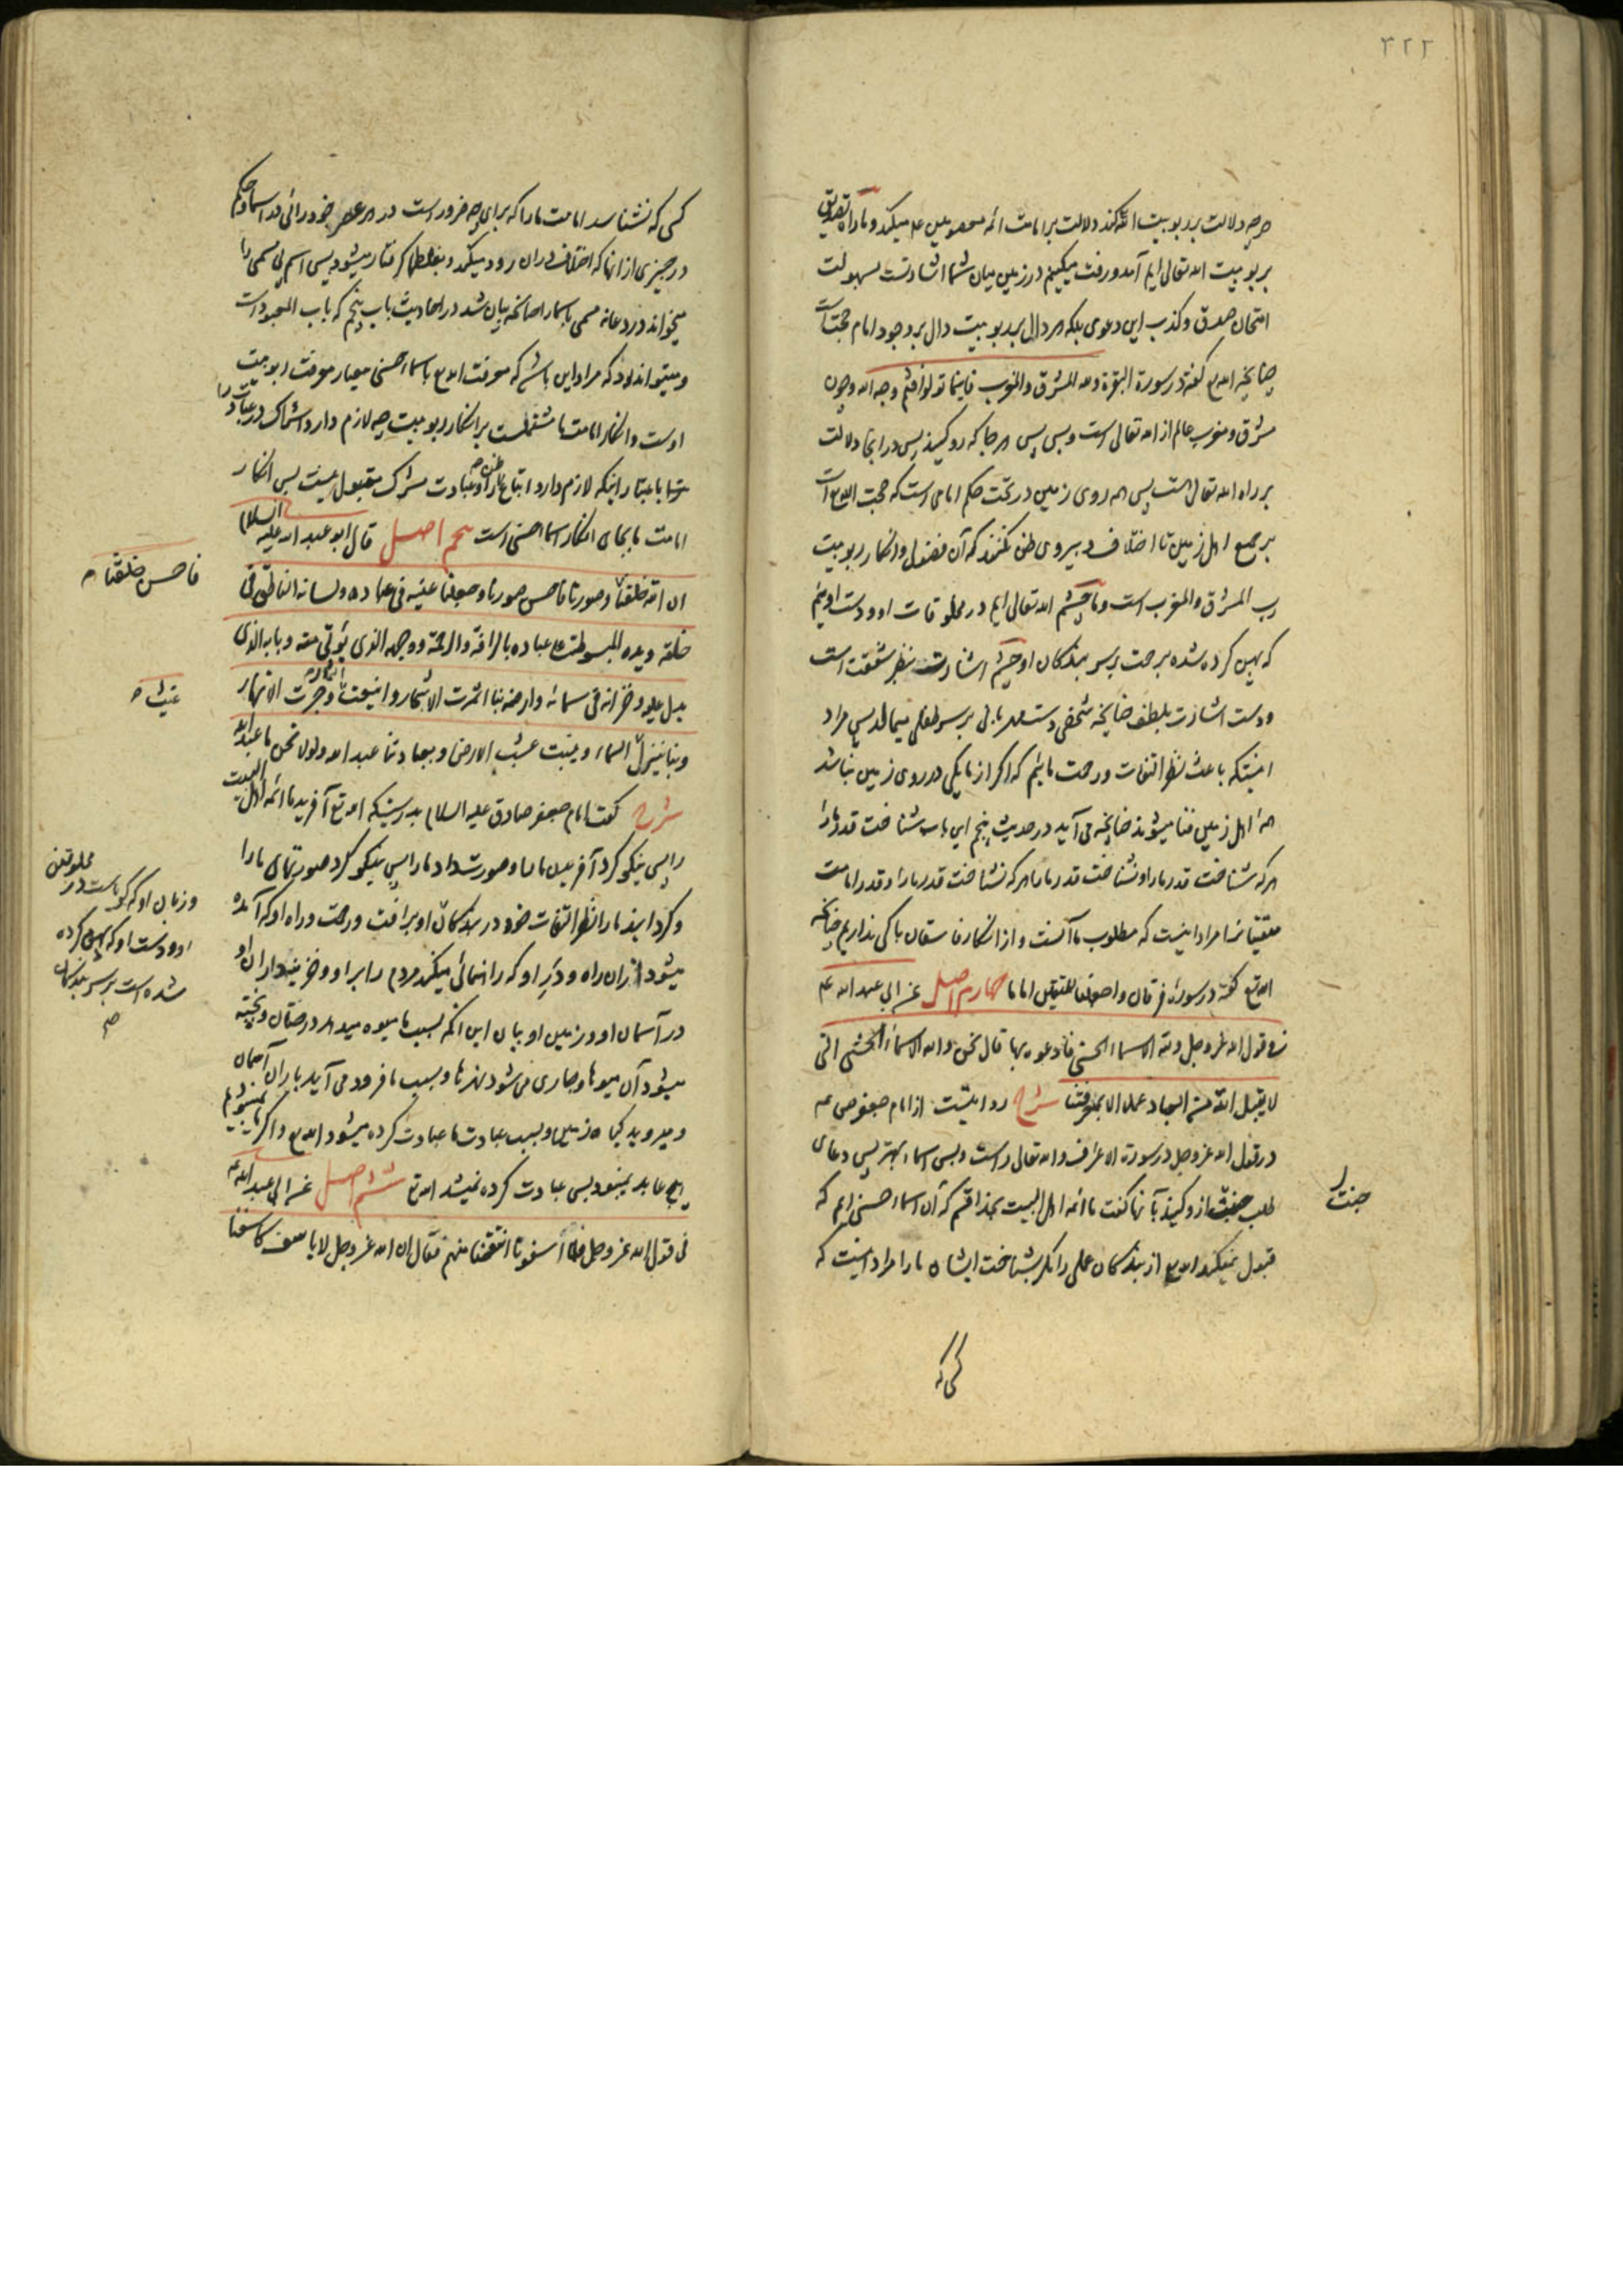 ۳۲۲
هرچه دلالت بر ربوبیت الله کند دلالت بر امامت ائمه معصومین ع میکند و ماراه تصدیق
بربوبیت الله تعالی ایم آمد و رفت میکنیم در زمین میان شما اشارتست بسهولت
امتحان صدق و کذب این دعوی بلکه هر دال بر ربوبیت دال بر وجود امام حجتست
چنانچه الله تع گفته در سورة البقرة ولله المشرق والمغرب فاینما تولوا فثم وجه الله و چون
مشرق و مغرب عالم از الله تعالی است و بس پس هر جا که رو کنید پس در آنجا دلالت
بر راه الله تعالی است پس همه روی زمین در تحت حکم امامی است که حجت الله تع است
بر جمیع اهل زمین تا اختلاف و پیروی ظن نکنند که آن فضول و انکار ربوبیت
رب المشرق والمغرب است و ما چشم الله تعالی ایم در مخلوقات او و دست اوئیم
که پهن کرده شده برحمت بر سر بندکان او چشم اشارت بنظر شفقت است
و دست اشارت بلطف چنانچه شخصی دست مهربانی بر سر طفلی میمالد پس مراد
اینستکه باعث نظر التفات و رحمت مائیم که اکر از ما یکی در روی زمین نباشد
همه اهل زمین فنا میشوند چنانچه می آید در حدیث پنجم این باب شناخت قدر ما را
هر که شناخت قدر ما را و نشناخت قدر ما را هر که نشناخت قدر ما را و قدر امامت
متقیانرا مراد اینست که مطلوب ما آنست و از انکار فاسقان باکی نداریم چنانچه
الله تع گفته در سورهٔ فرقان واجعلنا للمتقین اماما چهارم اصل عن ابی عبد الله ع
فی قول الله عز وجل ولله الاسماء الحسنی فادعوه بها قال نحن والله الاسماء الحسنی التی
لا یقبل الله من العباد عملا الا بمعرفتنا شرح روایتست از امام جعفر ص ع
در قول الله عز وجل در سورة الاعراف و الله تعالی راست و بس اسماء بهتر پس دعای
طلب جنت از و کنید بآنها گفت ما ائمه اهل البیت بخدا قسم که آن اسماء حسنی ایم که
قبول نمیکند الله تع از بندکان عملی را مکر بشناخت ایشان ما را مراد اینست که
جنت را
کسی که
کسی که نشناسد امامت ما را که برای چه ضرور است در هر عصر خود رائی در اسماء و حکم
در چیزی از آنها که اختلاف در آن رود میکند و بغلطها کرفتار میشود پس اسم بی مسمی را
میخواند در دعا نه مسمی باسما را چنانچه بیان شد در احادیث باب پنجم که باب المعبود است
و میتواند بود که مراد این باشد که معرفت الله تع باسماء حسنی معیار معرفت ربوبیت
اوست و انکار امامت ما مشتملست بر انکار ربوبیت چه لازم دارد اشراک در عبادت را
باعتبار اینکه لازم دارد اتباع ظن را و عبادت مشرک مقبول نیست پس انکار
امامت ما بجای انکار اسماء حسنی است پنجم اصل قال ابو عبد الله علیه السلام
ان الله خلقنا وصورنا فاحسن صورنا وجعلنا عینه فی عباده ولسانه الناطق فی
خلقه ویده المبسوطة علی عباده بالرافة والرحمة ووجهه الذی یؤتی منه وبابه الذی
یدل علیه وخزانه فی سمائه وارضه بنا اثمرت الاشجار واینعت الثمار وجرت الانهار
وبنا ینزل السماء وینبت عشب الارض وبعبادتنا عبد الله ولولا نحن ما عبد الله
شرح گفت امام جعفر صادق علیه السلام بدرستیکه الله تع آفرید ما ائمه اهل البیت
را پس نیکو کرد آفریدن ما را و صورت داد ما را پس نیکو کرد صورتهای ما را
و کردانید ما را نظر التفات خود در بندکان او برافت و رحمت و راه او که آمده
میشود از آن راه و در او که راهنمائی میکند مردم را بر او و خزینه داران او
در آسمان او و زمین او بیان این آنکه بسبب ما میوه میدهد درختان و پخته
میشود آن میوها و جاری می شود نهرها و بسبب ما فرود می آید باران آسمان
و میروید کیاه زمین و بسبب عبادت ما عبادت کرده میشود الله تع و اکر ما نمیبودیم
هیچ عابد نمیبود پس عبادت کرده نمیشد الله تع ششم اصل عن ابی عبد الله ع
فی قول الله عز وجل فلما آسفونا انتقمنا منهم فقال ان الله عز وجل لا یاسف کاسفنا
فاحسن خلقنا
عینه
و زبان او که کویاست در مخلوقین
او و دست او که پهن کرده
شده است بر سر بندکان